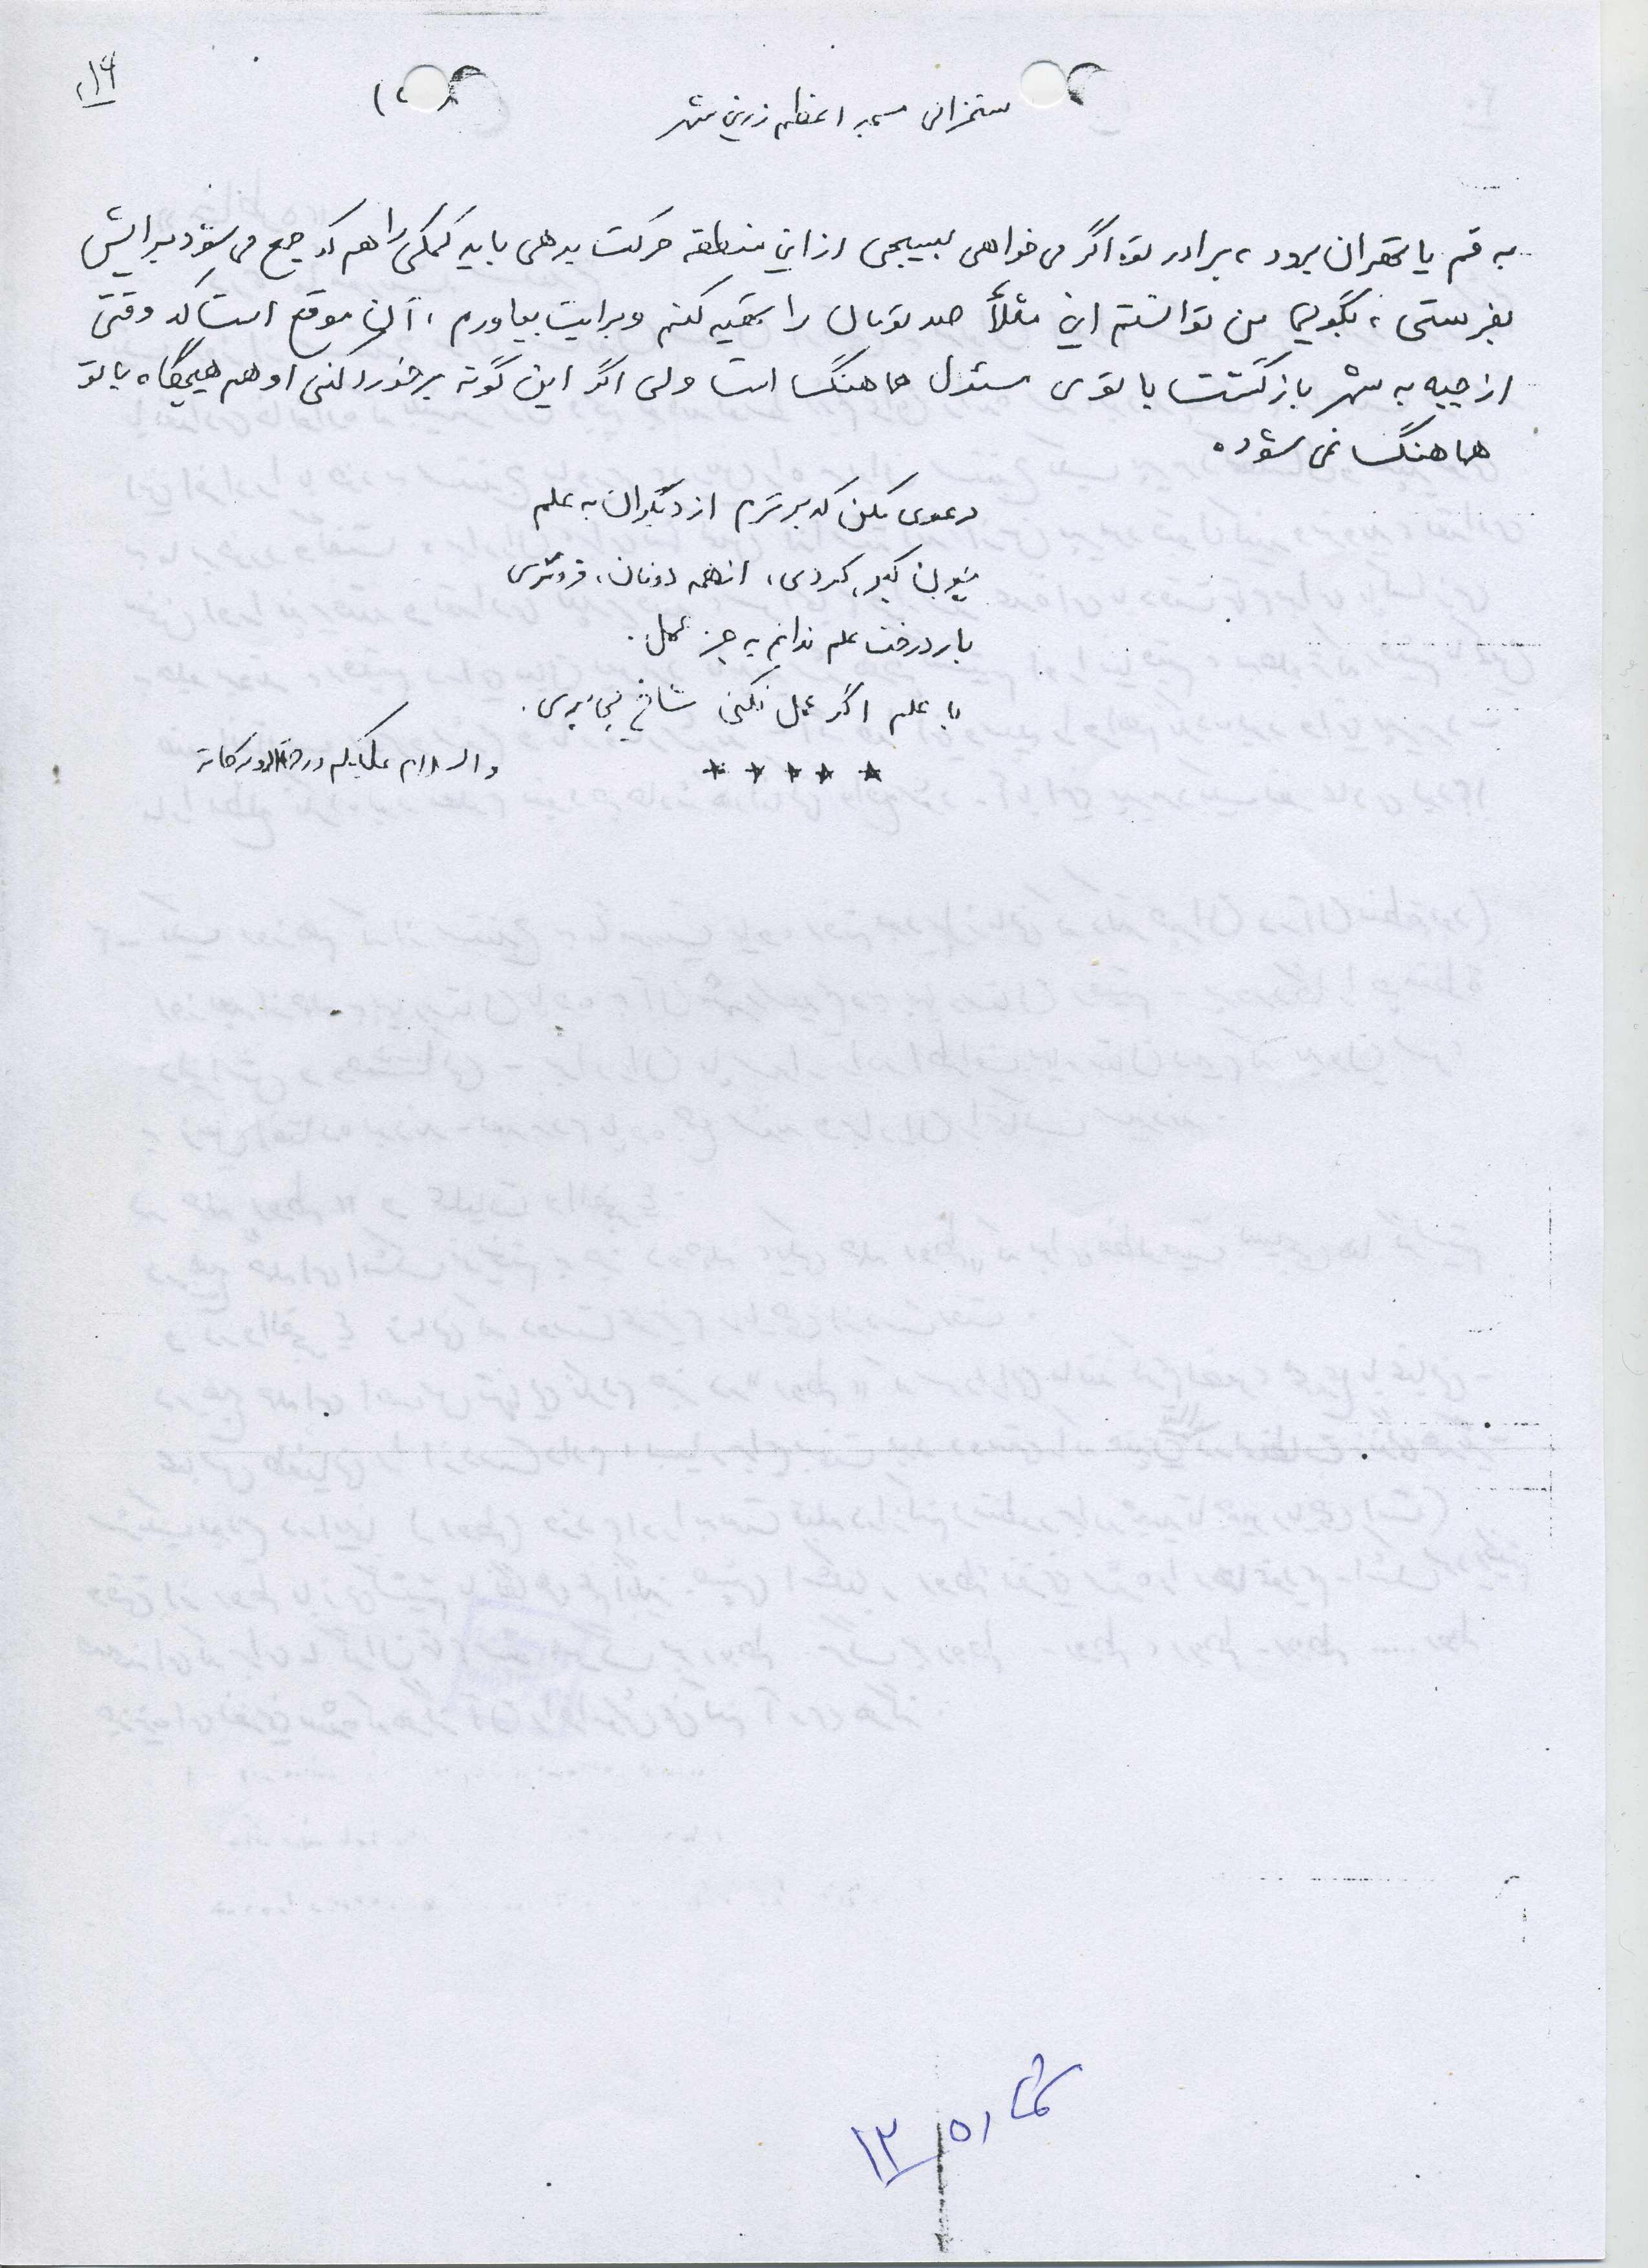 ۱۶
سخنرانی مسجد اعظم زرین شهر
به قم یا تهران برود، برادر تو، اگر می‌خواهی بسیجی از این منطقه حرکت بدهی باید کمکی را هم که جمع می‌شود برایش
بفرستی، بگوییا من توانستم این مثلاً صد تومان را تهیه کنم و برایت بیاورم، آن موقع است که وقتی
از جبهه به شهر بازگشت با توی مسئول هماهنگ است ولی اگر این گونه برخورد کنی او هم هیچگاه با تو
هماهنگ نمی‌شود.
دعوی مکن که برترم از دیگران به علم
چون کبر کردی، از همه دونان، فروتری
بار درخت علم ندانم به جز عمل.
با علم اگر عمل نکنی شاخ بی‌بری.
* * * * *
والسلام علیکم و رحمةالله و برکاته
شماره ۱۳